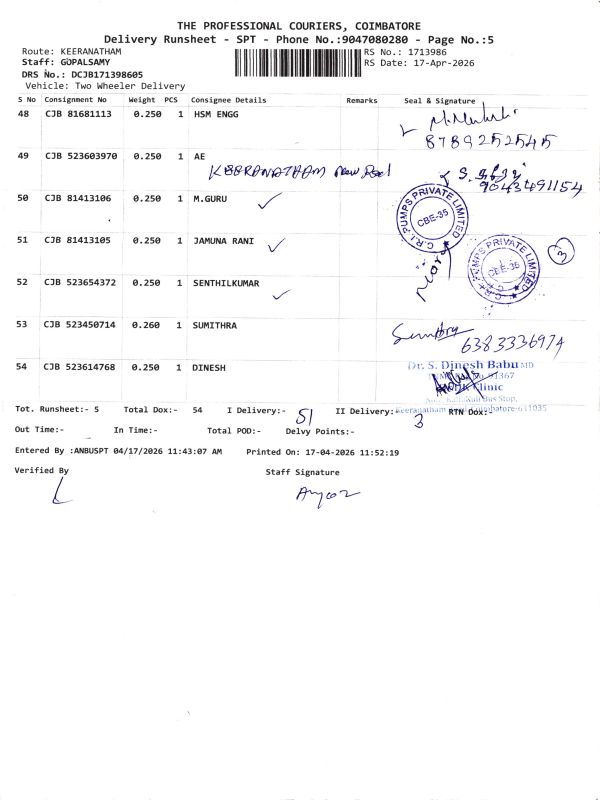 THE PROFESSIONAL COURIERS, COIMBATORE
Delivery Runsheet - SPT - Phone No.:9047080280 - Page No.:5
Route: KEERANATHAM RS No.: 1713986
Staff: GOPALSAMY RS Date: 17-Apr-2026
DRS No.: DCJB171398605
Vehicle: Two Wheeler Delivery
S No Consignment No Weight PCS Consignee Details Remarks Seal & Signature
48 CJB 81681113 0.250 1 HSM ENGG
8789252545
49 CJB 523603970 0.250 1 AE
KEERANATHAM New
9043491154
50 CJB 81413106 0.250 1 M.GURU
C.R.I. PUMPS PRIVATE LIMITED
CBE-35
51 CJB 81413105 0.250 1 JAMUNA RANI
C.R.I. PUMPS PRIVATE LIMITED
CBE-35
3
52 CJB 523654372 0.250 1 SENTHILKUMAR
53 CJB 523450714 0.260 1 SUMITHRA
6383336974
54 CJB 523614768 0.250 1 DINESH
Dr. S. Dinesh Babu MD
Clinic
Bus Stop,
Tot. Runsheet:- 5 Total Dox:- 54 I Delivery:- 51 II Delivery:- 3 RTN Dox:-
Keeranatham Coimbatore-641035
Out Time:- In Time:- Total POD:- Delvy Points:-
Entered By :ANBUSPT 04/17/2026 11:43:07 AM Printed On: 17-04-2026 11:52:19
Verified By Staff Signature